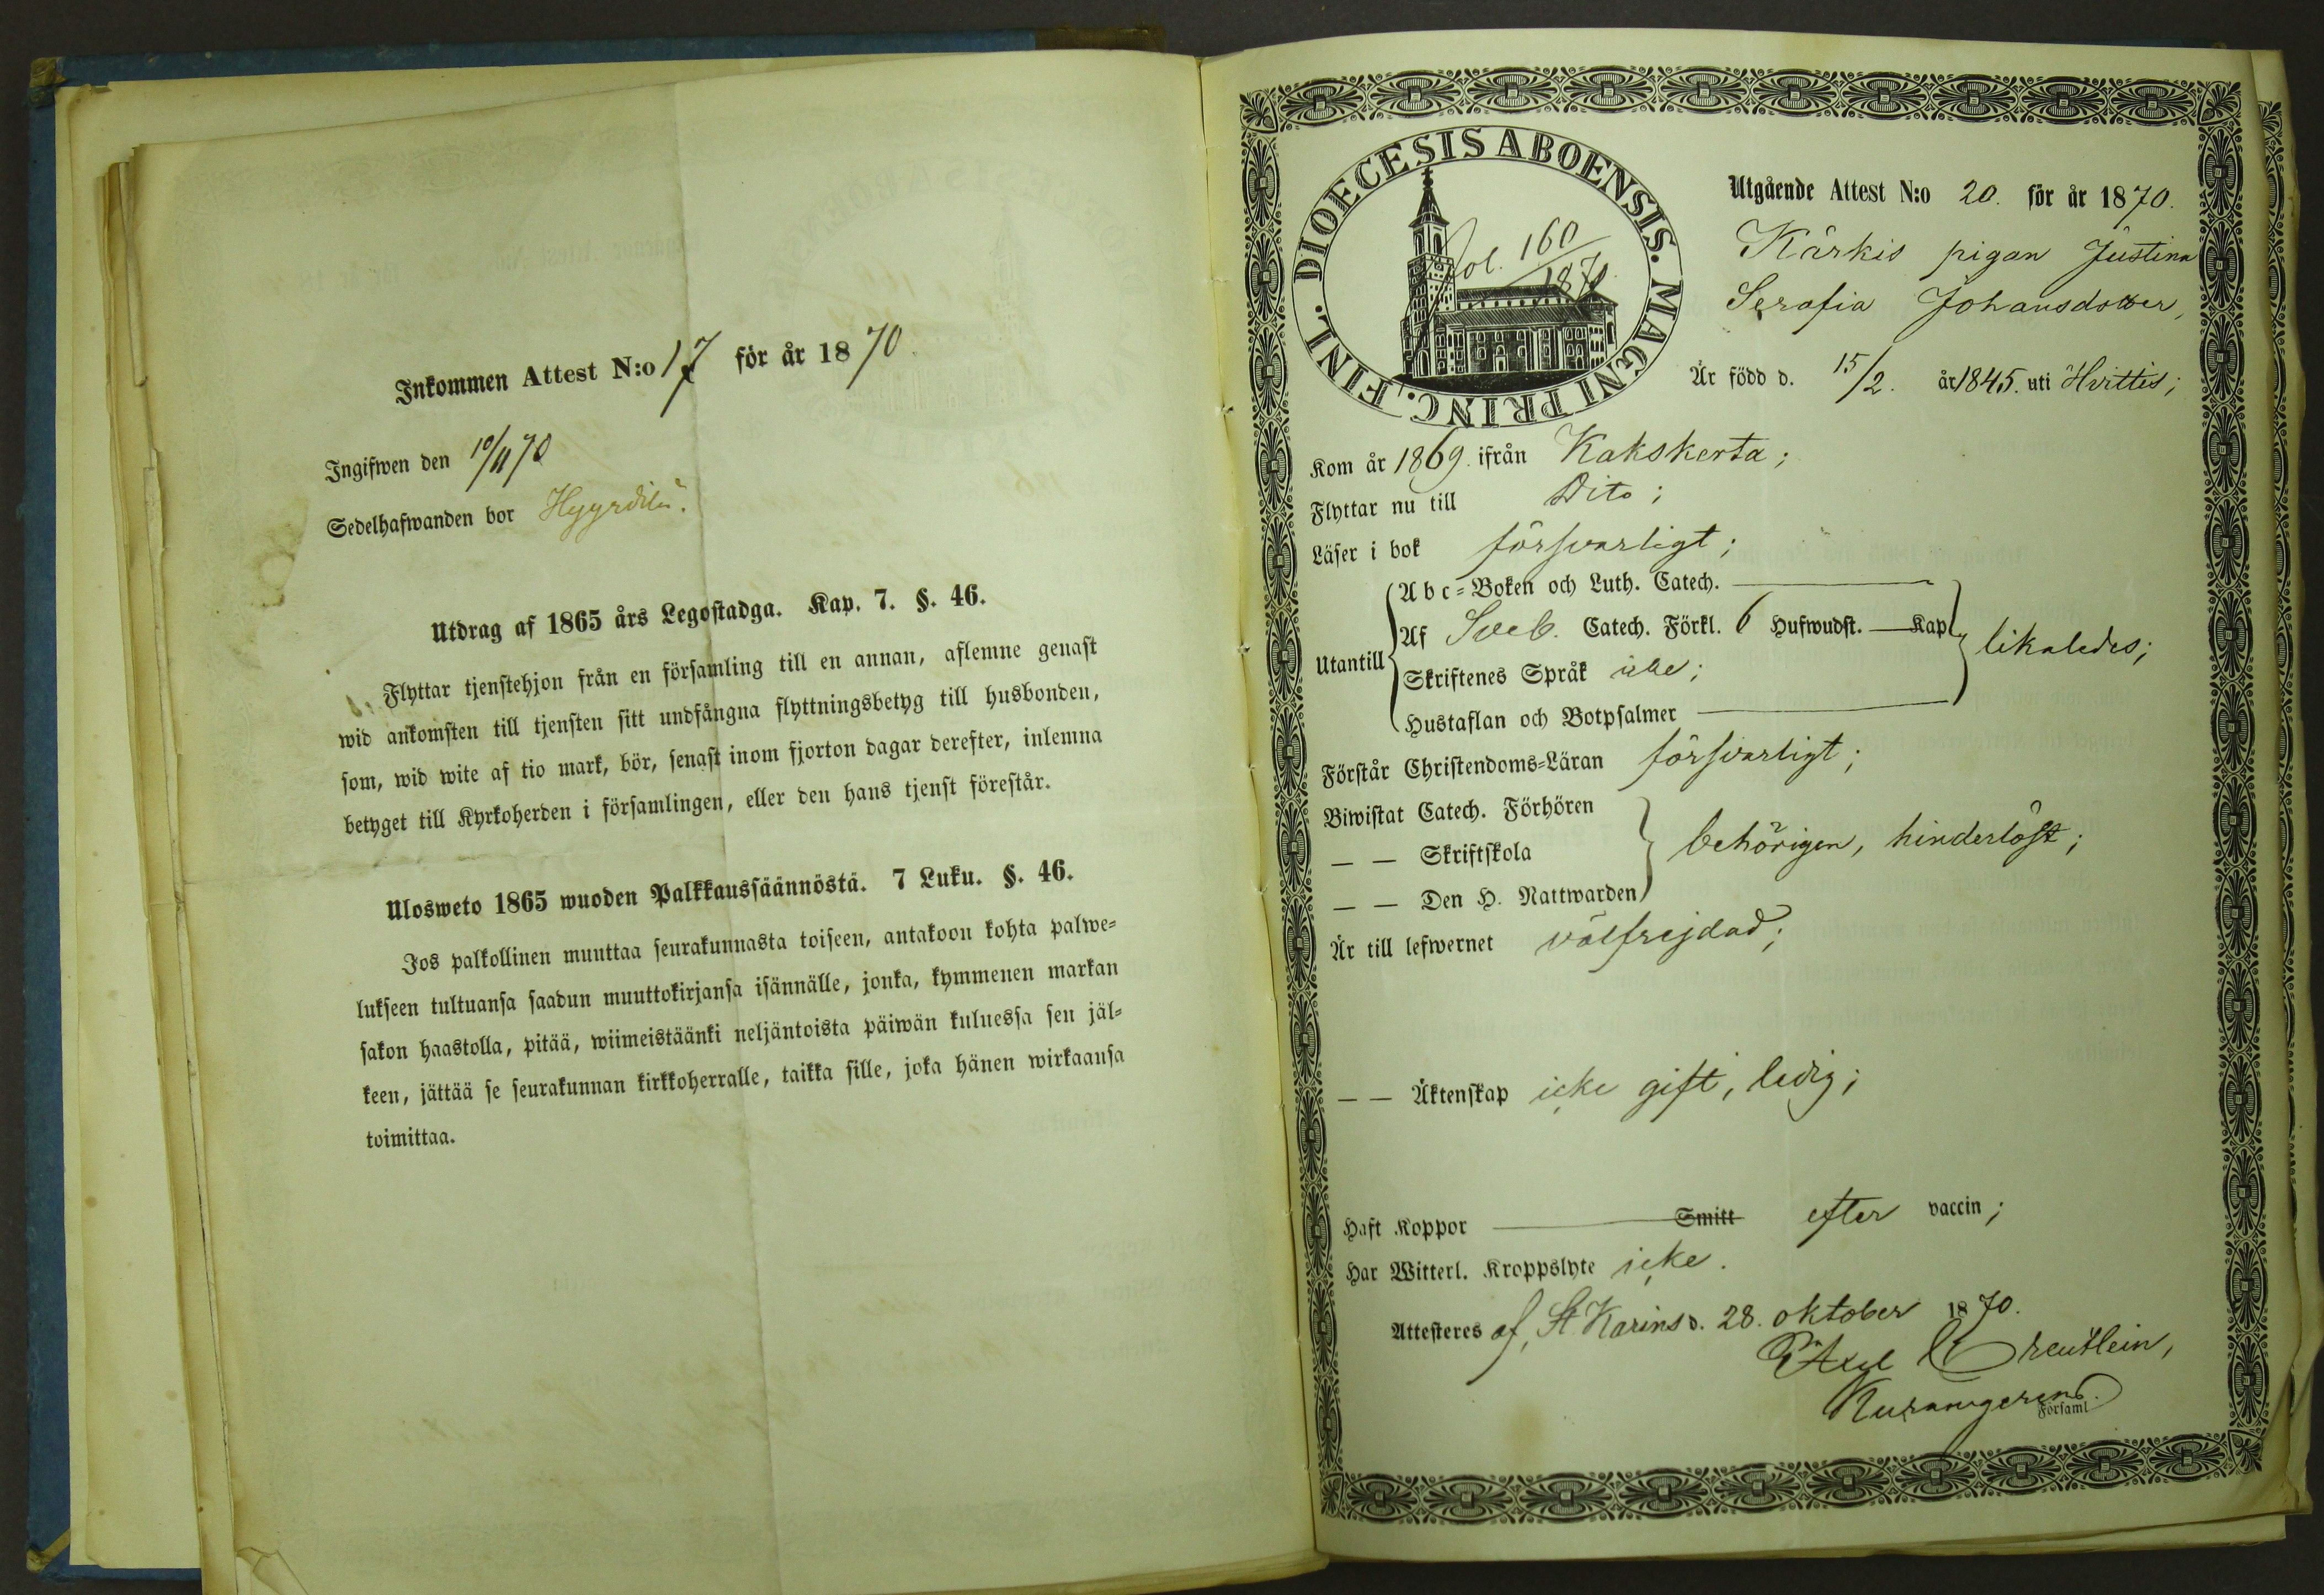 Inkommen Attest N:o 17 för år 1870.
Ingifwen den 10/11 70
Sedelhafwanden bor Hyyrdilä.
Utdrag af 1865 års Legostadga. Kap. 7. §. 46.
Flyttar tjenstehjon från en församling till en annan, aflemne genast
wid ankomsten till tjensten sitt undfångna flyttningsbetyg till husbonden,
som, wid wite af tio mark, bör, senast inom fjorton dagar derefter, inlemna
betyget till Kyrkoherden i församlingen, eller den hans tjenst förestår.
Ulosweto 1865 wuoden Palkkaussäännöstä. 7 Luku. §. 46.
Jos palkollinen muuttaa seurakunnasta toiseen, antakoon kohta palwe-
lukseen tultuansa saadun muuttokirjansa isännälle, jonka, kymmenen markan
sakon haastolla, pitää, wiimeistäänki neljäntoista päiwän kuluessa sen jäl-
keen, jättää se seurakunnan kirkkoherralle, taikka sille, joka hänen wirkaansa
toimittaa.
DIOECESIS ABOENSIS. MAGNI PRINC. FINL.
Fol. 160
1870.
Utgående Attest N:o 20. för år 1870.
Kärkis pigan Justina
Serafia Johansdotter,
Är född d. 15/2. år 1845. uti Hvittis;
Kom år 1869. ifrån Kakskerta;
Flyttar nu till Dito;
Läser i bok försvarligt;
Utantill
Abc-Boken och Luth. Catech.
Af Sveb. Catech. Förkl. 6 Hufwudst. — Kap
Skriftenes Språk icke;
Hustaflan och Botpsalmer
likaledes;
Förstår Christendoms-Läran försvarligt;
Biwistat Catech. Förhören
— — Skriftskola
— — Den H. Nattwarden
behörigen, hinderlöst;
Är till lefwernet välfrejdad;
— — Äktenskap icke gift, ledig;
Haft Koppor — Smitt efter vaccin;
Har Witterl. Kroppslyte icke.
Attesteres af, St. Karins d. 28. oktober 1870.
Axel Creutlein,
Församl